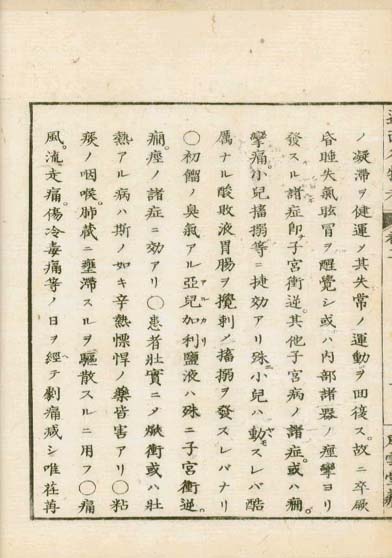 ノ凝滯ヲ健運シ其失常ノ運動ヲ回復ス。故ニ卒厥
昏睡失氣眩冒ヲ醒覺シ或ハ内部諸器ノ痙攣ヨリ
發スル諸症即子宮衝逆。其他子宮病ノ諸症。或ハ癇。
攣痛。小兒搐搦等ニ捷効アリ殊ニ小兒ハ動スレバ酷
厲ナル酸敗液胃腸ヲ攪刺シ搐搦ヲ發スレバナリ
〇初餾ノ臭氣アル亞兒加利鹽液ハ殊ニ子宮衝逆。
アルカリ
癇。痙ノ諸症ニ効アリ〇患者壯實ニシテ焮衝或ハ壯
熱アル病ハ斯ノ如キ辛熱慓悍ノ藥皆害アリ〇粘
痰ノ咽喉。肺藏ニ壅滯スルヲ驅散スルニ用フ〇痛
風。流走痛。傷冷毒痛等ノ日ヲ經テ劇痛減シ唯荏苒